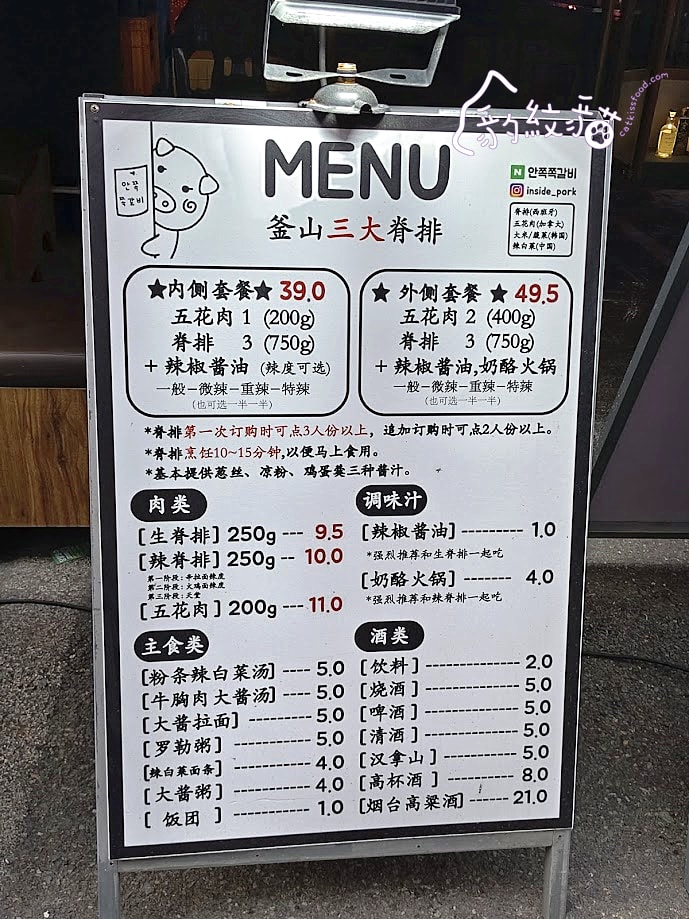 豹紋妞
catkissfood.com
안쪽
쪽갈비
MENU
N 안쪽쪽갈비
inside_pork
釜山三大脊排
脊排(西班牙)
五花肉(加拿大)
大米/蔬菜(韩国)
辣白菜(中国)
★内侧套餐★ 39.0
五花肉 1 (200g)
脊排 3 (750g)
+ 辣椒酱油 (辣度可选)
一般–微辣–重辣–特辣
(也可选一半一半)
★ 外侧套餐 ★ 49.5
五花肉 2 (400g)
脊排 3 (750g)
+ 辣椒酱油,奶酪火锅
一般–微辣–重辣–特辣
(也可选一半一半)
*脊排第一次订购时可点3人份以上, 追加订购时可点2人份以上。
*脊排烹饪10~15分钟,以便马上食用。
*基本提供葱丝、凉粉、鸡蛋羹三种酱汁。
肉类
[生脊排] 250g --- 9.5
[辣脊排] 250g -- 10.0
第一阶段:辛拉面辣度
第二阶段:火鸡面辣度
第三阶段:天堂
[五花肉] 200g --- 11.0
调味汁
[辣椒酱油] --------- 1.0
*强烈推荐和生脊排一起吃
[奶酪火锅] -------- 4.0
*强烈推荐和辣脊排一起吃
主食类
[粉条辣白菜汤] ---- 5.0
[牛胸肉大酱汤] --- 5.0
[大酱拉面] --------- 5.0
[罗勒粥] ---------- 5.0
[辣白菜面条] -------- 4.0
[大酱粥] ---------- 4.0
[ 饭团 ] ---------- 1.0
酒类
[饮料] ------------- 2.0
[烧酒] ------------- 5.0
[啤酒] ------------- 5.0
[清酒] ------------- 5.0
[汉拿山] ----------- 5.0
[高杯酒] ---------- 8.0
[烟台高粱酒] ------ 21.0